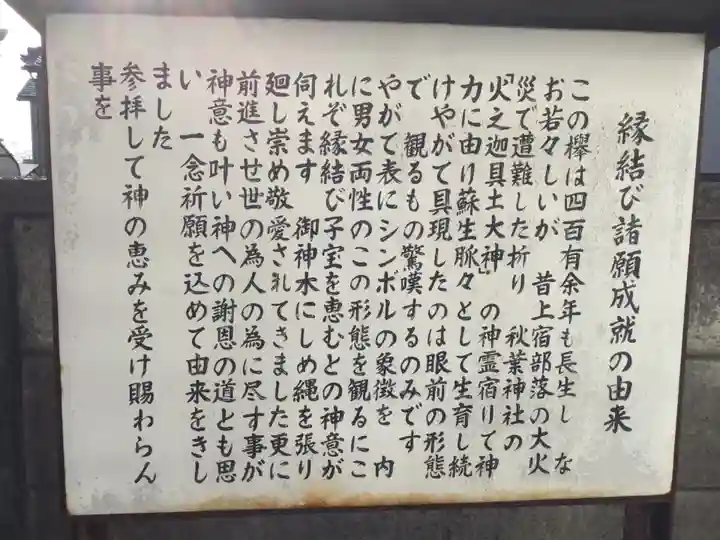 縁結び諸願成就の由来
この欅は四百有余年も長生し な
お若々しいが 昔上宿部落の大火
災で遭難した折り 秋葉神社の
「火之迦具土大神」の神霊宿りて神
力に由り蘇生脉々として生育し続
けやがて具現したのは眼前の形態
で 観るもの驚嘆するのみです
やがて表にシンボルの象徴を 内
に男女両性のこの形態を観るにこ
れぞ縁結び子宝を恵むとの神意が
伺えます 御神木にしめ縄を張り
廻し崇め敬愛されてきました更に
前進させ世の為人の為に尽す事が
神意も叶い神への謝恩の道とも思
い 一念祈願を込めて由来をきし
ました
参拝して神の恵みを受け賜わらん
事を